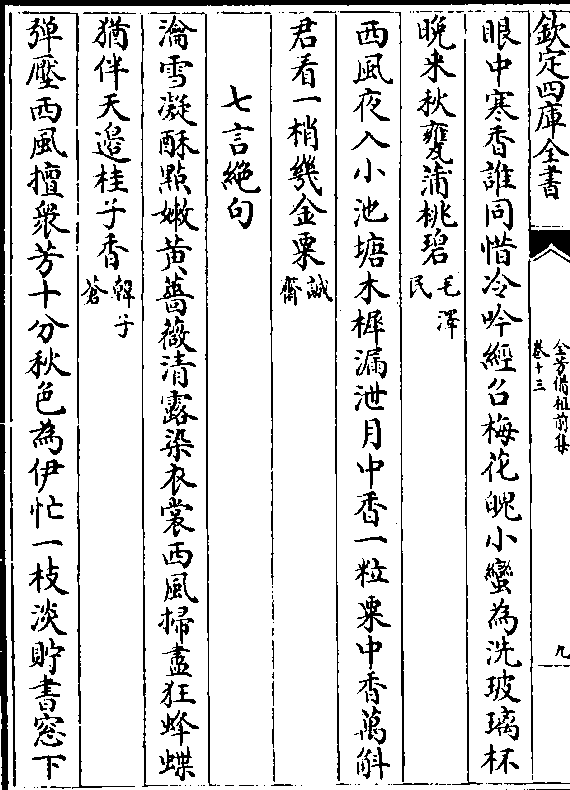 欽定四庫全書
全芳備祖前集
卷十三
九
眼中寒香誰同惜冷吟經召梅花魄小蠻為洗玻璃杯
晚来秋甕蒲桃碧毛澤民
西風夜入小池塘木樨漏泄月中香一粒粟中香萬斛
君看一梢幾金粟誠齋
七言絶句
瀹雪凝酥點嫩黄薔薇清露染衣裳西風掃盡狂蜂蝶
猶伴天邉桂子香韓子蒼
弹壓西風擅衆芳十分秋色為伊忙一枝淡貯書窓下